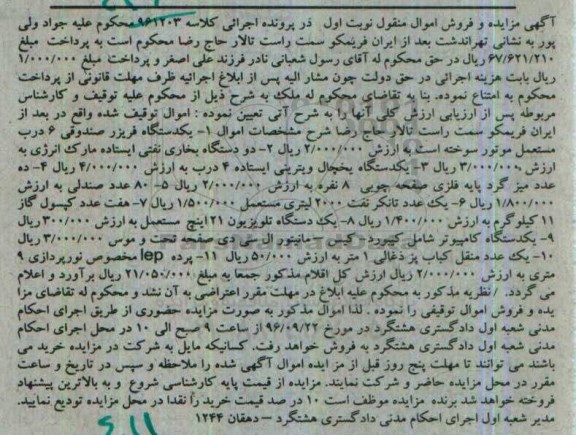 آگهی مزایده و فروش اموال منقول نوبت اول در پرونده اجرائی کلاسه ۹۶۱۲۰۳ محکوم علیه جواد ولی
پور به نشانی تهراندشت بعد از ایران فریمکو سمت راست تالار حاج رضا محکوم است به پرداخت مبلغ
۶۷/۶۲۱/۲۱۰ ریال در حق محکوم له آقای رسول شعبانی نادر فرزند علی اصغر و پرداخت مبلغ ۱/۰۰۰/۰۰۰
ریال بابت هزینه اجرائی در حق دولت چون مشار الیه پس از ابلاغ اجرائیه ظرف مهلت قانونی از پرداخت
محکوم به امتناع نموده. بنا به تقاضای محکوم له ملک به شرح ذیل از محکوم علیه توقیف و کارشناس
مربوطه پس از ارزیابی ارزش کلی آنها را به شرح آتی تعیین نموده : اموال توقیف شده واقع در بعد از
ایران فریمکو سمت راست تالار حاج رضا شرح مشخصات اموال ۱- یکدستگاه فریزر صندوقی ۶ درب
مستعمل موتور سوخته است به ارزش ۲/۰۰۰/۰۰۰ ریال ۲- دو دستگاه بخاری نفتی ایستاده مارک انرژی به
ارزش ۳/۰۰۰/۰۰۰ ریال ۳- یکدستگاه یخچال ویترینی ایستاده ۴ درب به ارزش ۴/۰۰۰/۰۰۰ ریال ۴- ده
عدد میز گرد پایه فلزی صفحه چوبی ۸ نفره به ارزش ۲/۰۰۰/۰۰۰ ریال ۵- ۸۰ عدد صندلی به ارزش
۱/۸۰۰/۰۰۰ ریال ۶- یک عدد تانکر نفت ۲۰۰۰ لیتری مستعمل ۱/۵۰۰/۰۰۰ ریال ۷- هفت عدد کپسول گاز
۱۱ کیلوگرم به ارزش ۱/۴۰۰/۰۰۰ ریال ۸- یک دستگاه تلویزیون ۲۱ اینچ مستعمل به ارزش ۳۰۰/۰۰۰ ریال
۹- یکدستگاه کامپیوتر شامل کیبورد - کیس - مانیتور ال سی دی صفحه تخت و موس ۳/۰۰۰/۰۰۰ ریال
۱۰- یک عدد منقل کباب پز ذغالی ۱ متر به ارزش ۵۰/۰۰۰ ریال ۱۱- پرده lep مخصوص نورپردازی ۹
متری به ارزش ۲/۰۰۰/۰۰۰ ریال ارزش کل اقلام مذکور جمعا به مبلغ ۲۱/۰۵۰/۰۰۰ ریال برآورد و اعلام
می گردد. / نظریه مذکور به محکوم علیه ابلاغ در مهلت مقرر اعتراضی به آن نشد و محکوم له تقاضای مزا
یده و فروش اموال توقیفی را نموده . لذا اموال مذکور به صورت مزایده حضوری از طریق اجرای احکام
مدنی شعبه اول دادگستری هشتگرد در مورخ ۹۶/۰۹/۲۲ از ساعت ۹ صبح الی ۱۰ در محل اجرای احکام
مدنی شعبه اول دادگستری هشتگرد به فروش خواهد رفت. کسانیکه مایل به شرکت در مزایده خرید می
باشند می توانند تا مهلت پنج روز قبل از مزایده اموال آگهی شده را ملاحظه و سپس در تاریخ و ساعت
مقرر در محل مزایده حاضر و شرکت نمایند. مزایده از قیمت پایه کارشناسی شروع و به بالاترین پیشنهاد
فروخته خواهد شد برنده مزایده موظف است ۱۰ در صد قیمت خرید را نقدا در محل مزایده تودیع نمایید.
مدیر شعبه اول اجرای احکام مدنی دادگستری هشتگرد – دهقان ۱۲۴۴